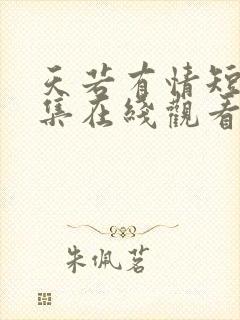 天若有情短
集在綫觀看
朱佩茗